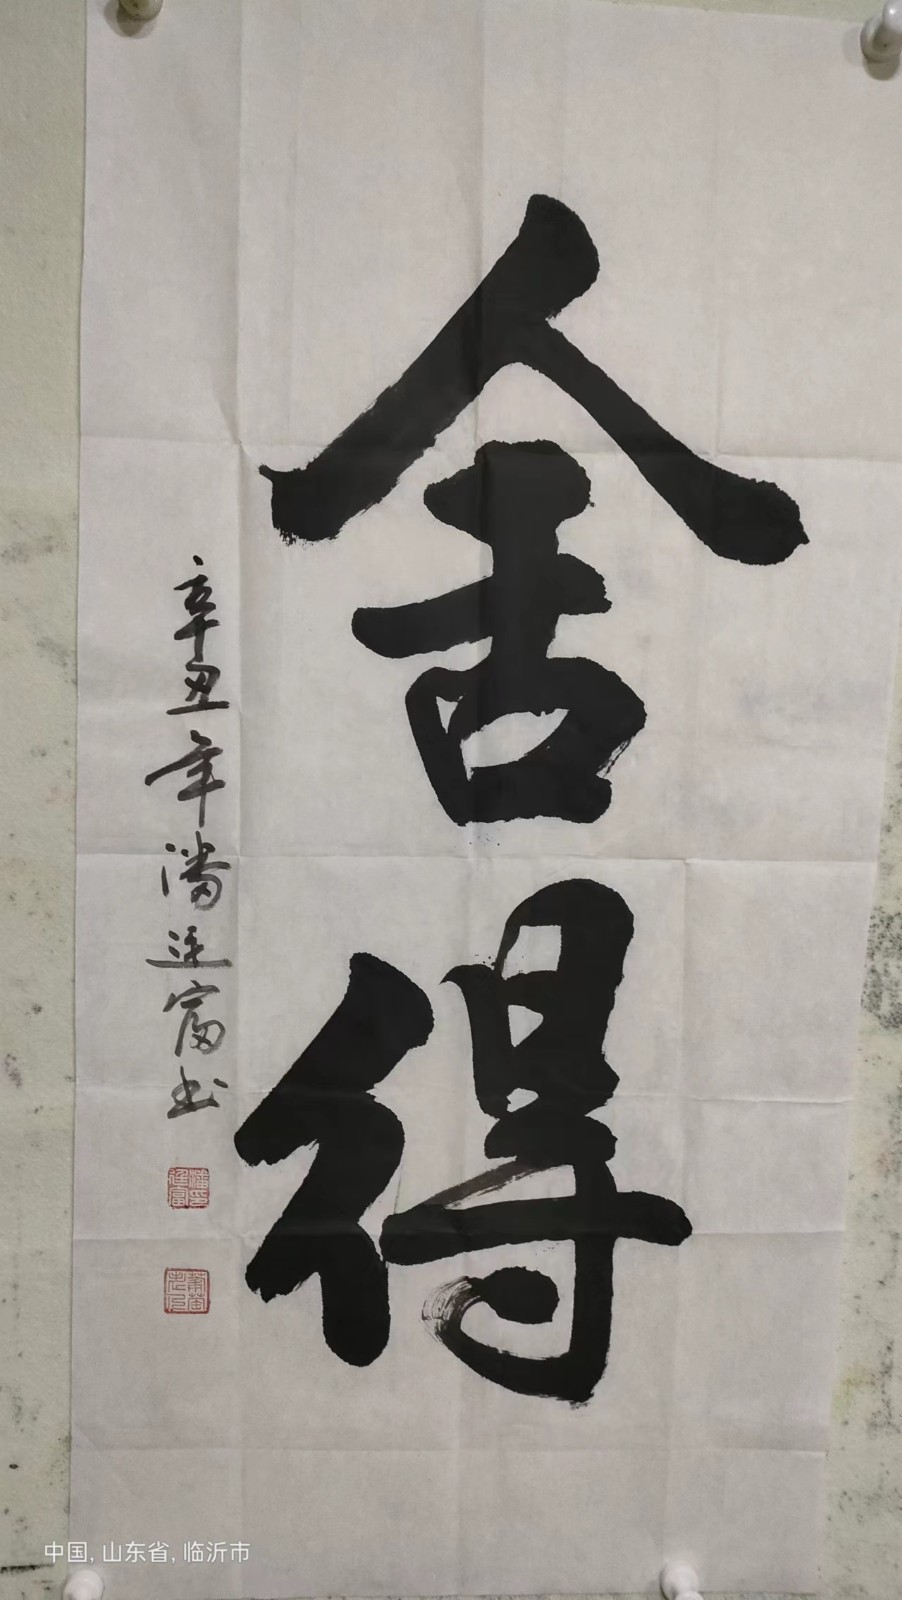 舍得
辛丑年潘廷富书
中国, 山东省, 临沂市